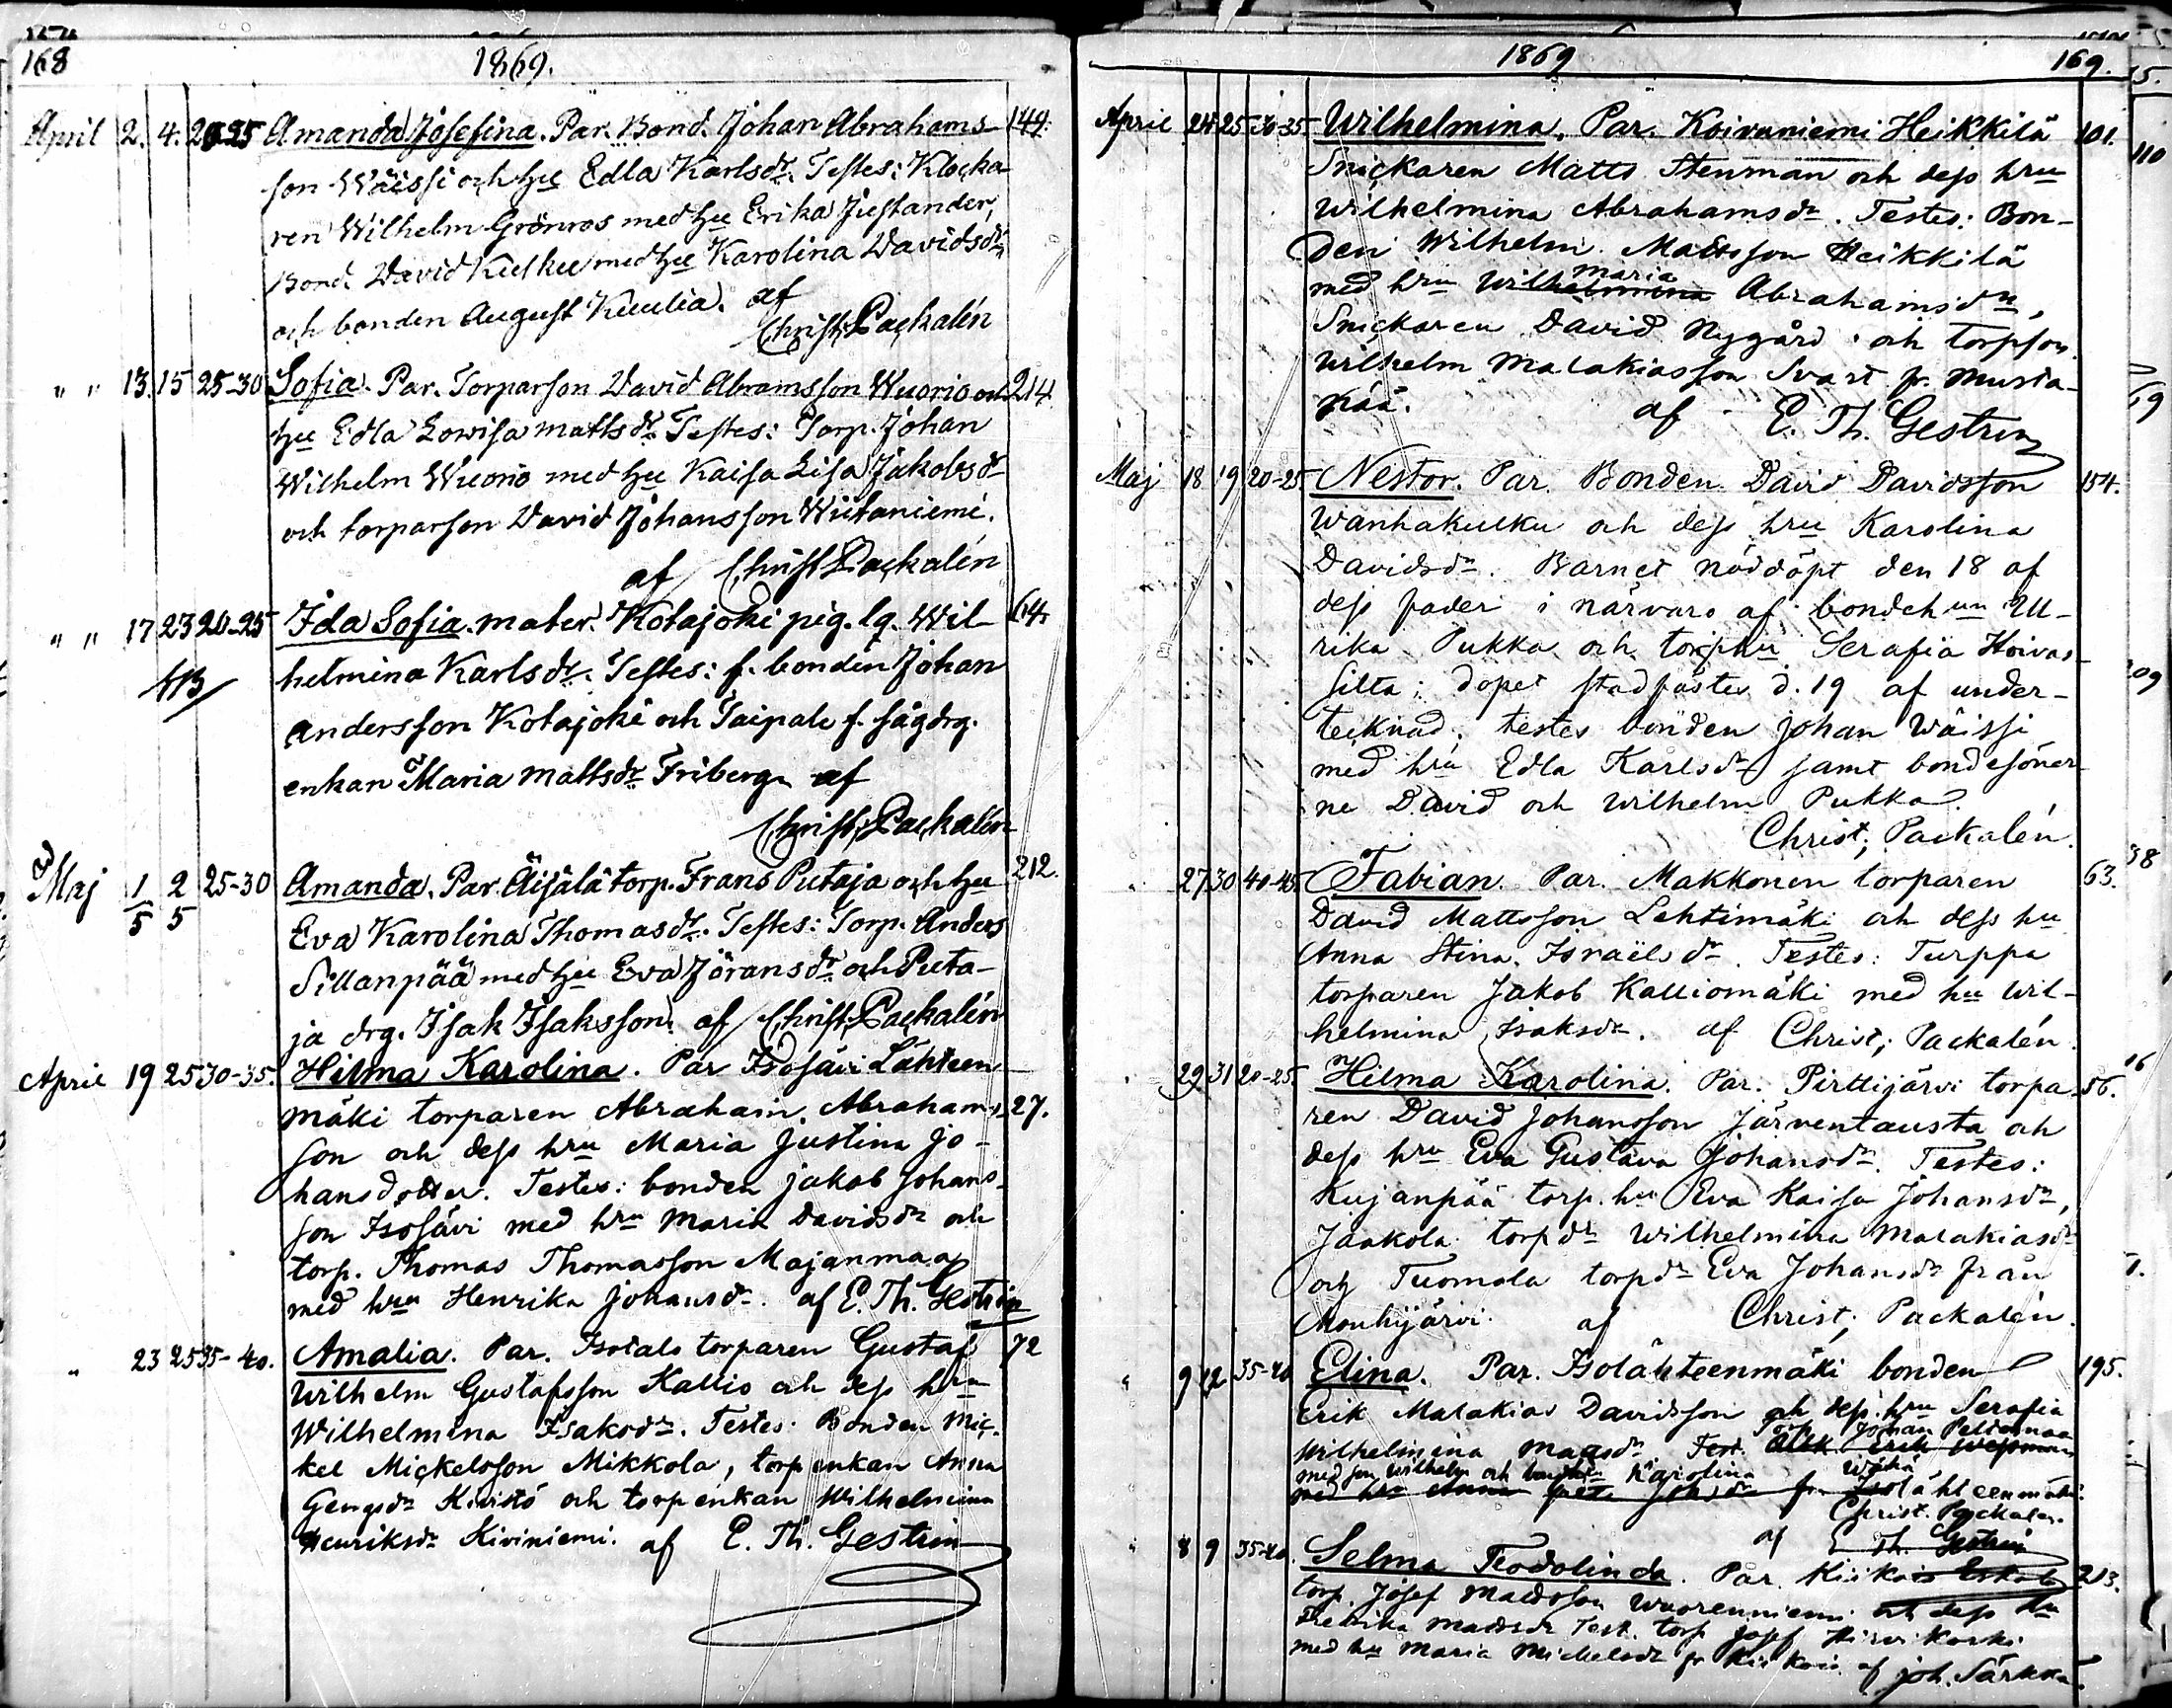 168 1869.
April 2. 4. 20-25 Amanda Josefina. Par. Bond. Johan Abrahams- 144.
son Wäissi och hu Edla Karlsdr. Testes: Klocka-
ren Wilhelm Grönroos med hu Erika Justander,
Bond. David Kulku med hu Karolina Davidsdr
och bonden August Kuulia. af
Christ; Packalén
" " 13. 15 25-30 Sofia. Par. Torparson David Abramsson Wuorio och 214.
hu Edla Lowisa Mattsdr. Testes: Torp. Johan
Wilhelm Wuorio med hu Kaisa Lisa Jakobsdr
och torparson David Johansson Wiitaniemi.
af Christ; Packalén
" " 17 23 20-25 Ida Sofia. mater. Kotajoki pig. lq. Wil- 64.
helmina Karlsdr. Testes: f. bonden Johan
Andersson Kotajoki och Taipale f. sågdrg.
enkan Maria Mattsdr Friberg. af
Christ; Packalén
Maj 1/5 2/5 25-30 Amanda. Par. Äijälä torp. Frans Putaja och hu 212.
Eva Karolina Thomasdr. Testes: Torp. Anders
Sillanpää med hu Eva Göransdr och Puta-
ja drg. Isak Isaksson. af Christ; Packalén
April 19 25 30-35. Hilma Karolina. Par Isosävi Lähteen-
mäki torparen Abraham Abrahams- 27.
son och dess hru Maria Justina Jo-
hansdotter. Testes: bonden Jakob Johans-
son Isosävi med hru Maria Davidsdr och
torp. Thomas Thomasson Majanmaa
med hru Henrika Johansdr. af E. Th. Gestrin
" 23 25 35-40. Amalia. Par. Isotalo torparen Gustaf 72
Wilhelm Gustafsson Kallio och dess hru
Wilhelmina Isaksdr. Testes: Bonden Mic-
kel Mickelsson Mikkola, torpenkan Anna
Kivistö och torpenkan Wilhelmina
Henriksdr Kiviniemi. af E. Th. Gestrin
1869 169.
April 24 25 30-35. Wilhelmina. Par. Koivuniemi Heikkilä 101.
Snickaren Matts Stenman och dess hru
Wilhelmina Abrahamsdr. Testes: Bon-
den Wilhelm Mattsson Heikkilä
maria
med hru Wilhelmina Abrahamsdr,
Snickaren David Nygård och torpson
Wilhelm Malakiasson Svart fr. Musta-
pää. af E. Th. Gestrin
Maj 18 19 20-25. Nestor. Par. Bonden David Davidsson 154.
Wanhakulku och dess hru Karolina
Davidsdr. Barnet nöddöpt den 18 af
dess fader i närvaro af bondehun Ul-
rika Pukka och torphu Serafia Hoivas-
silta; dopet stadfästes d. 19 af under-
tecknad; testes bonden Johan Wäissi
med hru Edla Karlsdr samt bondesöner-
ne David och Wilhelm Pukka.
Christ; Packalén.
" 27 30 40-45. Fabian. Par. Makkonen torparen 63.
David Mattsson Lehtimäki och dess hu
Anna Stina Israëlsdr. Testes: Turppa
torparen Jakob Kalliomäki med hu Wil-
helmina Isaksdr. af Christ; Packalén.
" 29 31 20-25. Hilma Karolina. Par. Pirttijärvi torpa- 56.
ren David Johansson Järventausta och
dess hru Eva Gustava Johansdr. Testes:
Kujanpää torp. hu Eva Kaisa Johansdr,
Jaakola torpdr Wilhelmina Malakiasdr
och Tuomola torpdr Eva Johansdr från
Mouhijärvi. af Christ; Packalén.
" 9 12 35-40 Elina. Par. Isolähteenmäki bonden 195.
Erik Malakias Davidsson och dess hru Serafia
Torp Johan Peltomaa
Wilhelmina Mattsdr. Test.
med son Wilhelm och Karolina
fr. Isolähteenmäki.
Christ. Packalen.
af E Th. Gestrin
" 8 9 35-40. Selma Teodolinda. Par. Kiikois 213.
torp. Josef Mattsson Wuorenniemi och dess hu
Fredrika Mattsdr Test. torp Josef Hirvikoski
med hu Maria Michelsdr fr Kiikois af Joh. Särkkä.